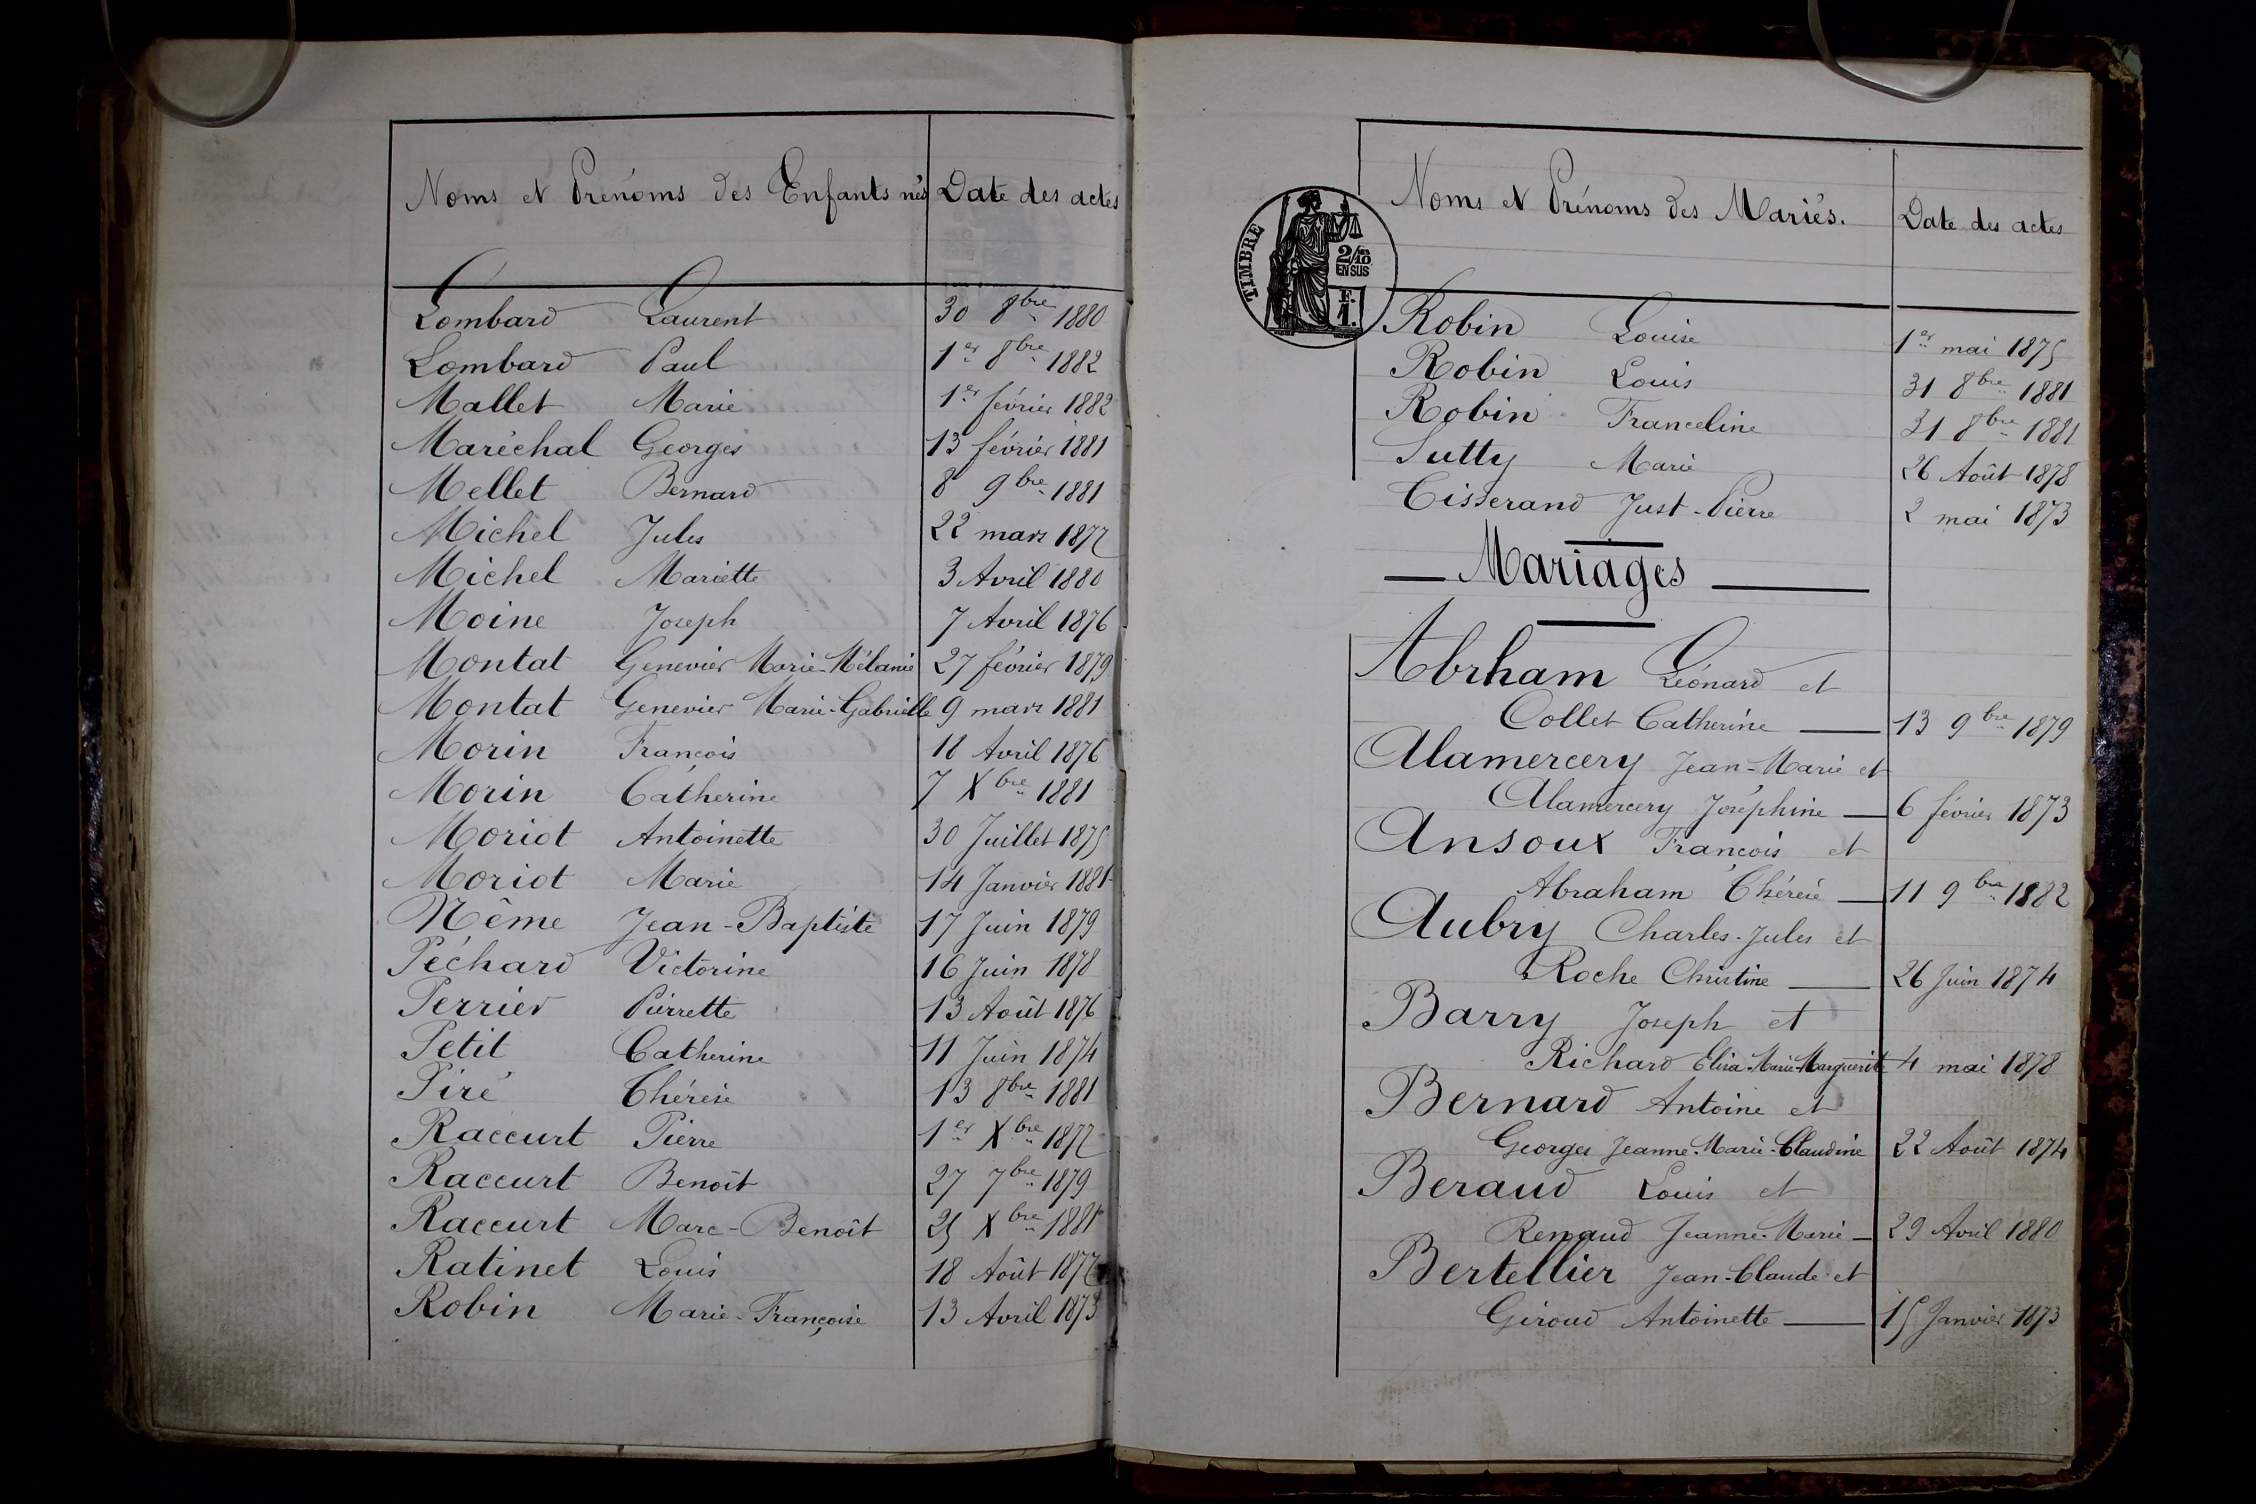 Noms et Prénoms des Enfants nés Date des actes
Lombard Laurent 30 8bre 1880
Lombard Paul 1er 8bre 1882
Mallet Marie 1er février 1882
Maréchal Georges 13 février 1881
Mellet Bernard 8 9bre 1881
Michel Jules 22 mars 1877
Michel Mariette 3 Avril 1880
Moine Joseph 7 Avril 1876
Montat Genevier Marie-Mélanie 27 février 1879
Montat Genevier Marie-Gabrielle 9 mars 1881
Morin François 18 Avril 1876
Morin Catherine 7 Xbre 1881
Moriot Antoinette 30 Juillet 1875
Moriot Marie 14 Janvier 1881
Même Jean-Baptiste 17 Juin 1879
Péchard Victorine 16 Juin 1878
Perrier Pierrette 13 Août 1876
Petit Catherine 11 Juin 1874
Piré Thérèse 13 8bre 1881
Raccurt Pierre 1er Xbre 1877
Raccurt Benoît 27 7bre 1879
Raccurt Marc-Benoît 25 Xbre 1881
Ratinet Louis 18 Août 1877
Robin Marie-Françoise 13 Avril 1873
Noms et Prénoms des Mariés. Date des actes
TIMBRE
2/10 EN SUS
F. 1.
Robin Louise 1er mai 1875
Robin Louis 31 8bre 1881
Robin Franceline 31 8bre 1881
Sutty Marie 26 Août 1878
Tisserand Just-Pierre 2 mai 1873
Mariages
Abrham Léonard et
Collet Catherine 13 9bre 1879
Alamercery Jean-Marie et
Alamercery Joséphine 6 février 1873
Ansoux François et
Abraham Thérèse 11 9bre 1882
Aubry Charles-Jules et
Roche Christine 26 Juin 1874
Barry Joseph et
Richard Elisa-Marie-Marguerite 4 mai 1878
Bernard Antoine et
Georges Jeanne-Marie-Claudine 22 Août 1874
Beraud Louis et
Renaud Jeanne-Marie 29 Avril 1880
Bertellier Jean-Claude et
Giroud Antoinette 15 Janvier 1873